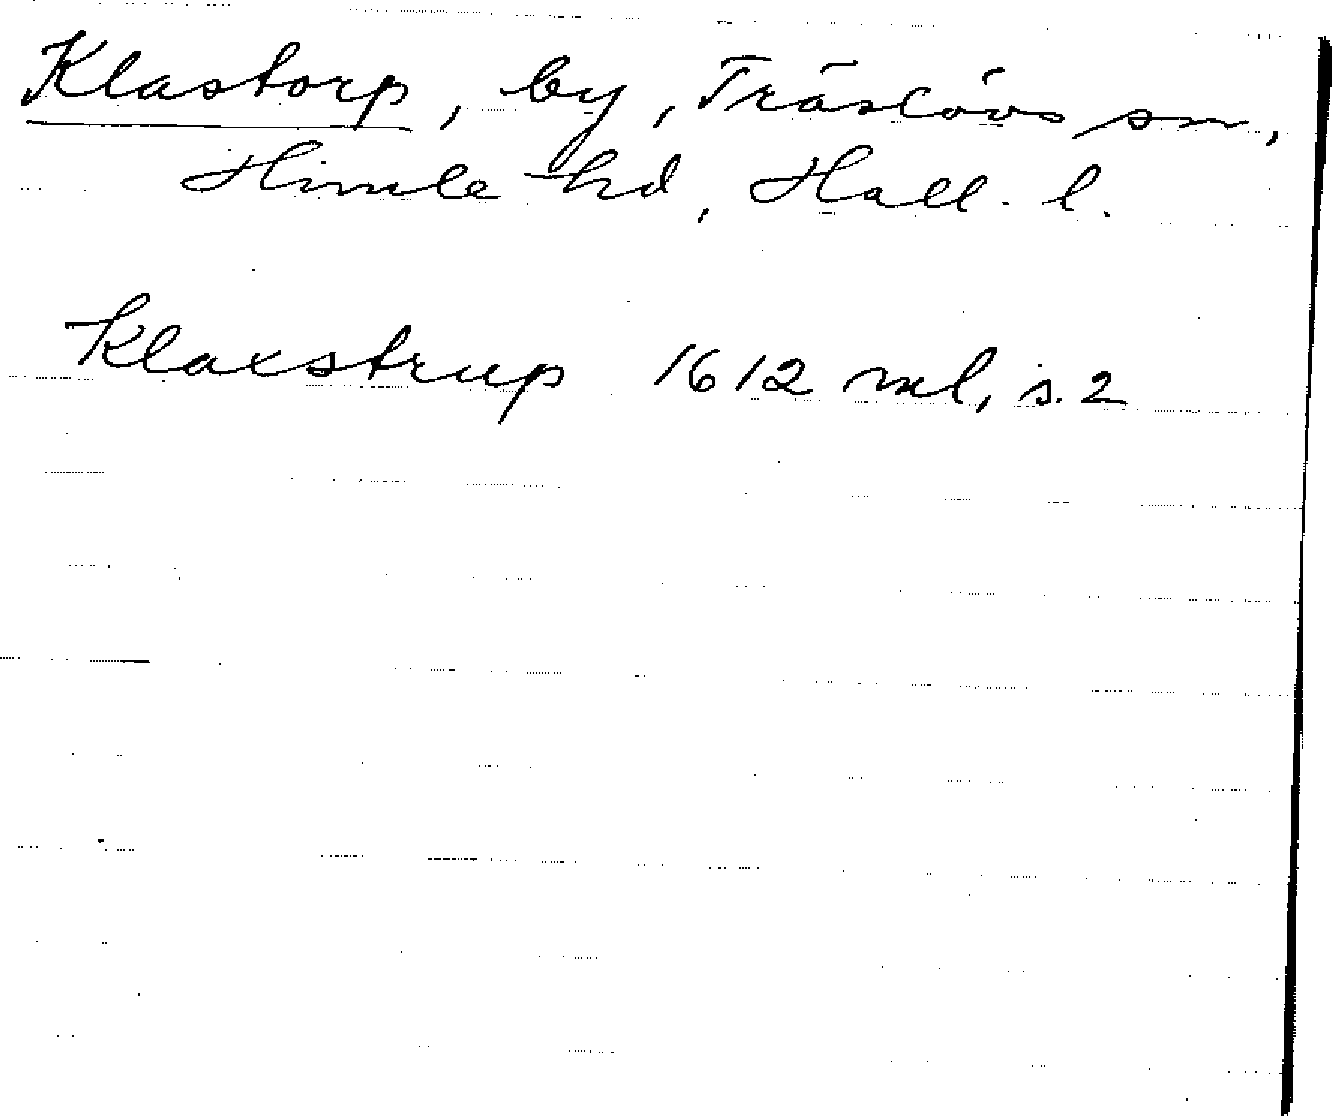 Klastorp, by, Träslövs sn,
Himle hd, Hall. l.
Klaxstrup 1612 ml, s. 2